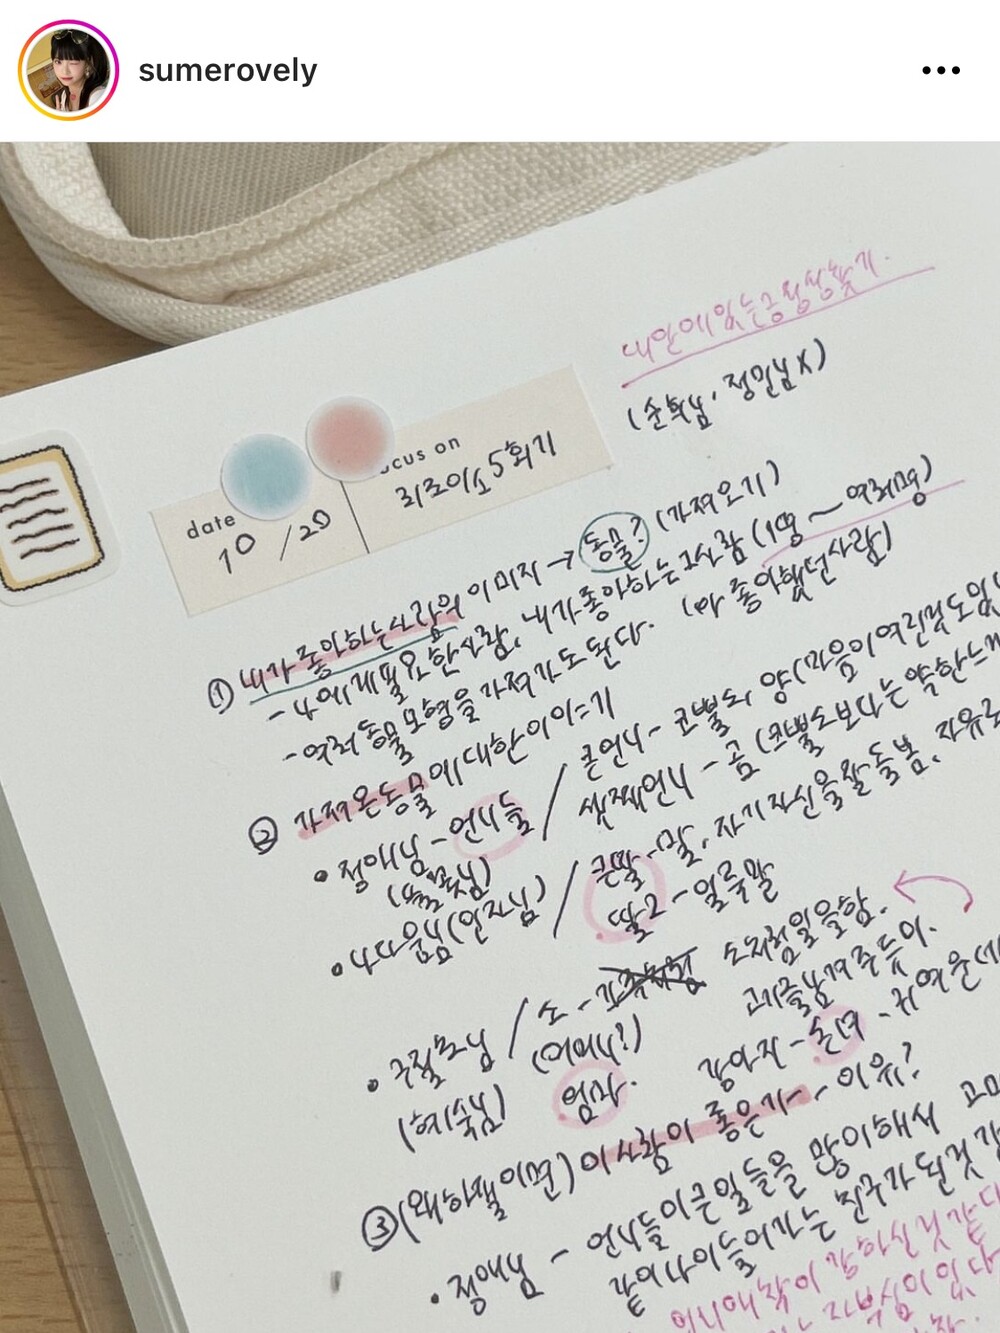 sumerovely
내안에있는긍정성찾기.
(순화님, 정민님 X)
date
10 / 20
cus on
리조이스 5회기
① 내가 좋아하는사람의 이미지 → 동물? (가져오기)
- 나에게 필요한사람, 내가좋아하는 그사람 (1명 ~ 여러명)
- 여러 동물모형을 가져가도 된다. (나 좋아했던사람)
② 가져온동물에대한이야기
• 정애님 - 언니들 / 큰언니 - 코뿔소, 양 (마음이여린
셋째언니 - 곰 (코뿔소보다는 약한느
• 나다움님 / 큰딸 - 말. 자기자신을잘돌봄. 자유
딸2 - 얼룩말
/ 소 - 소처럼일을함.
(혜숙님) (어머니?)
엄마. 강아지 - 손녀 - 귀여운
③ (왜하필이면) 이사람이 좋은가 - 이유?
• 정애님 - 언니들이큰일들을 많이해서
같이나이들어가는 친구가 된것